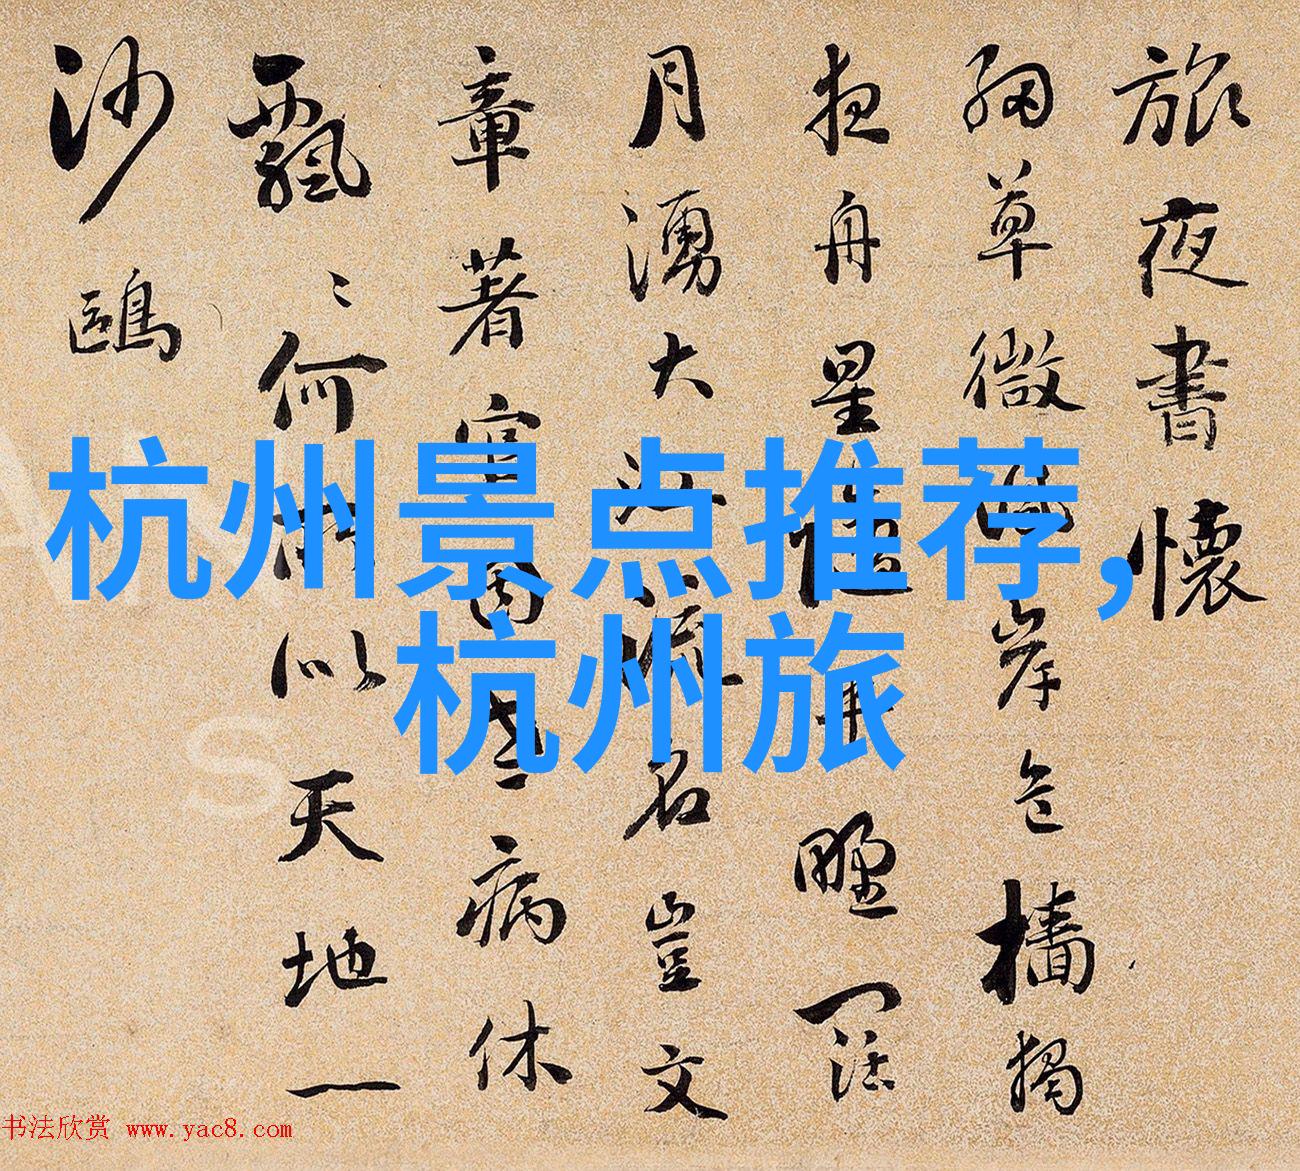 杭州景点推荐,
杭州旅
旅夜書懷
細草微風岸危檣獨
夜舟星平野闊
月湧大江流名豈文
章著官因老病休
飄〻何所似天地一
沙鷗
书法欣赏 www.yac8.com